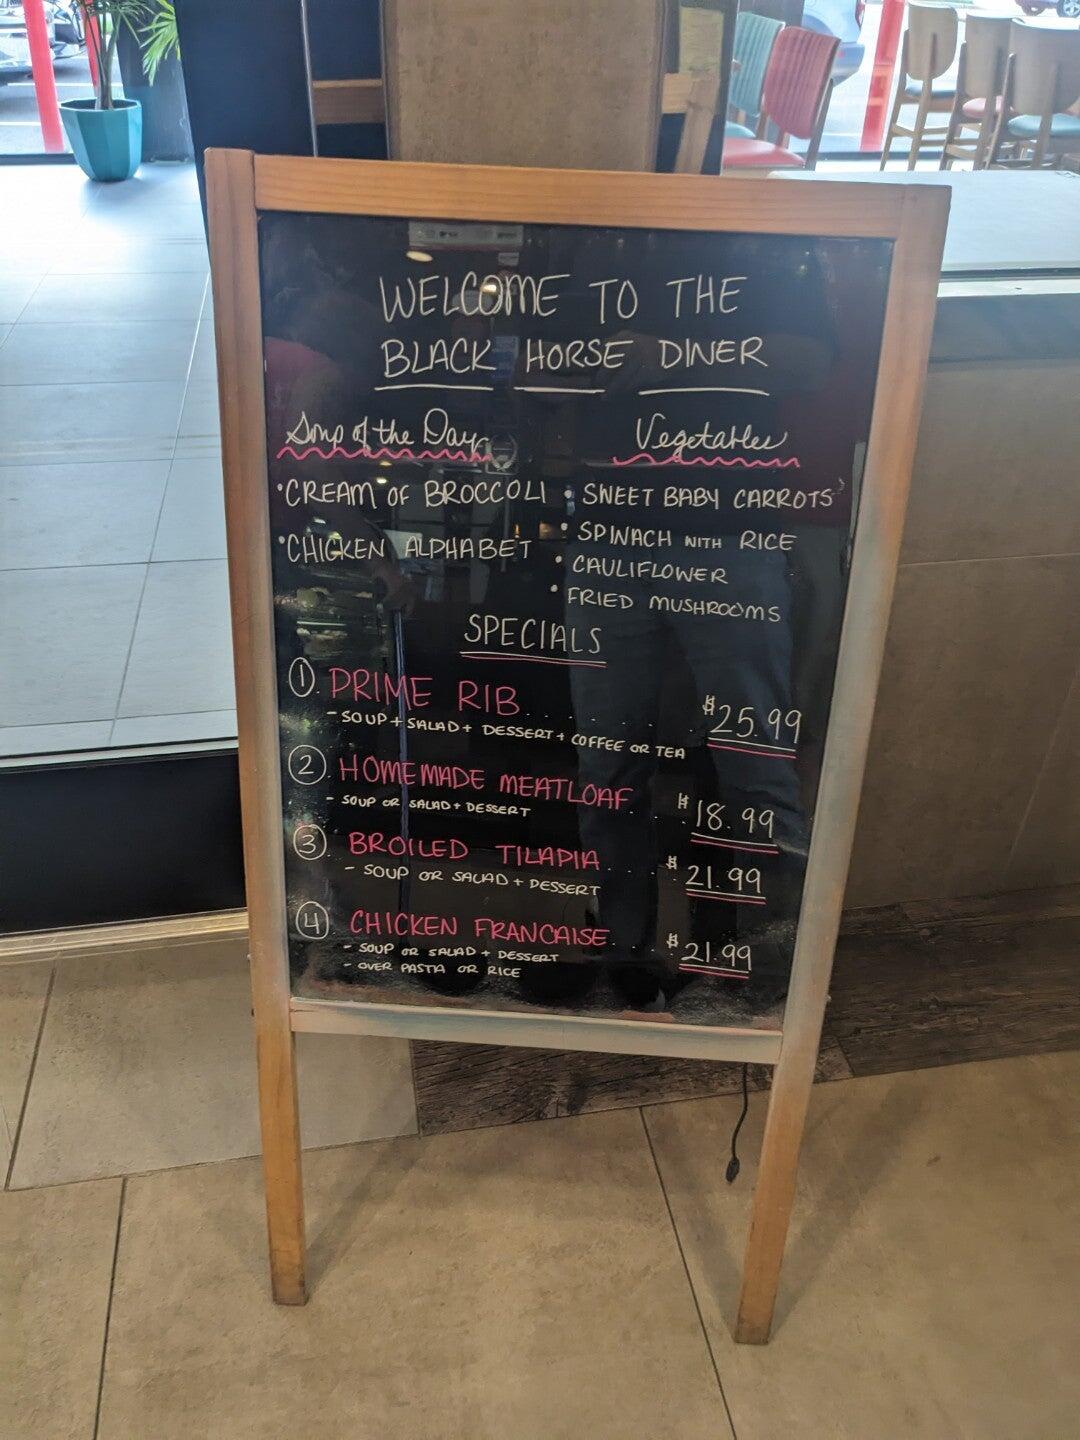 WELCOME TO THE
BLACK HORSE DINER
Soup of the Day
• CREAM OF BROCCOLI
• CHICKEN ALPHABET
Vegetables
• SWEET BABY CARROTS
• SPINACH WITH RICE
• CAULIFLOWER
• FRIED MUSHROOMS
SPECIALS
1. PRIME RIB....... $25.99
- SOUP + SALAD + DESSERT + COFFEE OR TEA
2. HOMEMADE MEATLOAF.... $18.99
- SOUP OR SALAD + DESSERT
3. BROILED TILAPIA..... $21.99
- SOUP OR SALAD + DESSERT
4. CHICKEN FRANCAISE.... $21.99
- SOUP OR SALAD + DESSERT
- OVER PASTA OR RICE